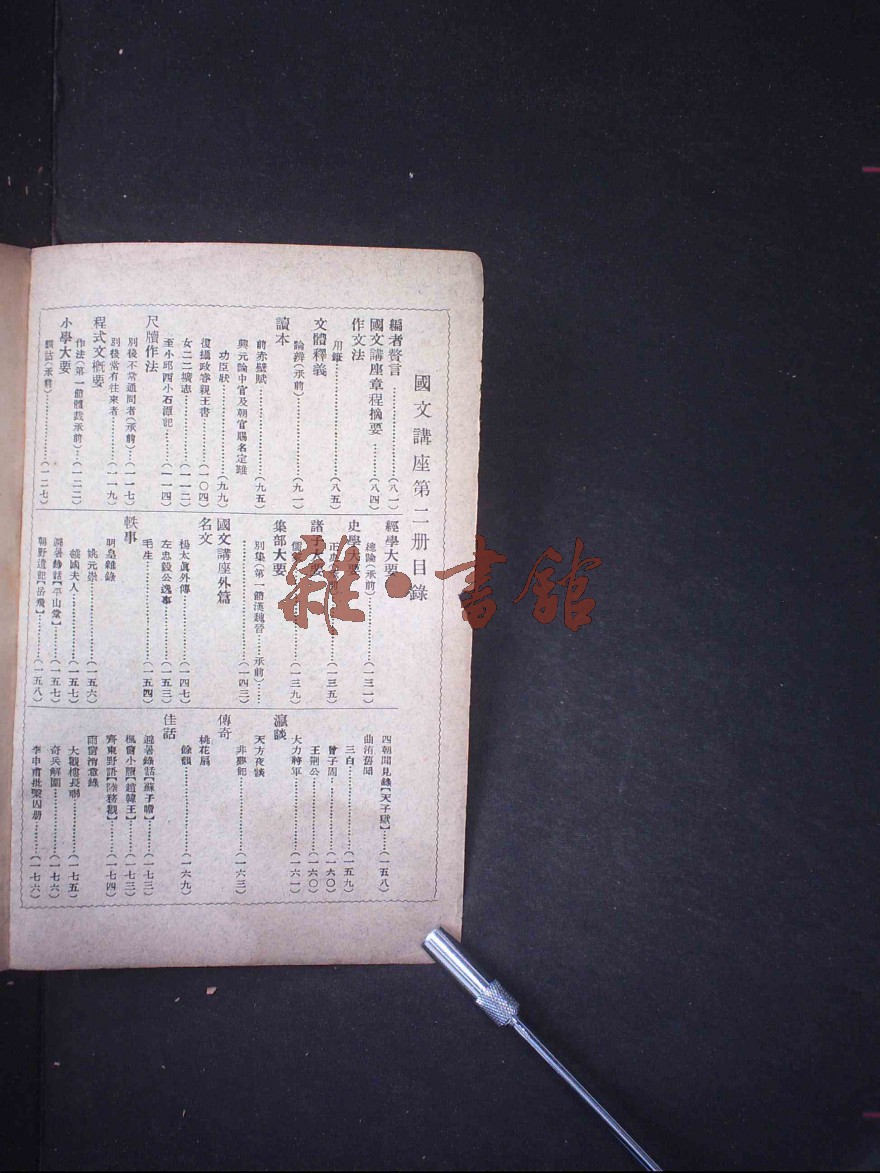 國文講座第二册目錄
編者贅言…………(八一)
國文講座章程摘要…………(八四)
作文法
用筆…………(八五)
文體釋義
論辨(承前)…………(九一)
讀本
前赤壁賦…………(九五)
興元論中官及朝官賜名定難
功臣狀…………(九九)
復攝政睿親王書…………(一〇四)
女二二壙志…………(一一二)
至小邱西小石潭記…………(一一四)
尺牘作法
別後不常通問者(承前)…………(一一七)
別後常有往來者…………(一一九)
程式文概要
作法(第一節體裁承前)…………(一二二)
小學大要
訓詁(承前)…………(一二七)
經學大要
總論(承前)…………(一三一)
史學大要
正史…………(一三五)
諸子大要
儒家…………(一三九)
集部大要
別集(第一節漢魏晉—承前)……
…………(一四三)
國文講座外篇
名文
楊太眞外傳…………(一四七)
左忠毅公逸事…………(一五三)
毛生…………(一五四)
軼事
明皇雜錄
姚元崇…………(一五六)
虢國夫人…………(一五七)
避暑錄話【平山堂】…………(一五七)
朝野遺記【岳飛】…………(一五八)
四朝聞見錄【天子獄】…………(一五八)
曲洧舊聞
三白…………(一五九)
曾子固…………(一六〇)
王荆公…………(一六〇)
大力將軍…………(一六一)
瀛談
天方夜談
非夢記…………(一六三)
傳奇
桃花扇
餘韻…………(一六九)
佳話
避暑錄話【蘇子瞻】…………(一七三)
楓窗小牘【趙韓王】…………(一七三)
齊東野語【陸務觀】…………(一七四)
雨窗消意錄
大觀樓長聯…………(一七五)
奇兵解圍…………(一七六)
李申甫批緊囚册…………(一七六)
雜·書館